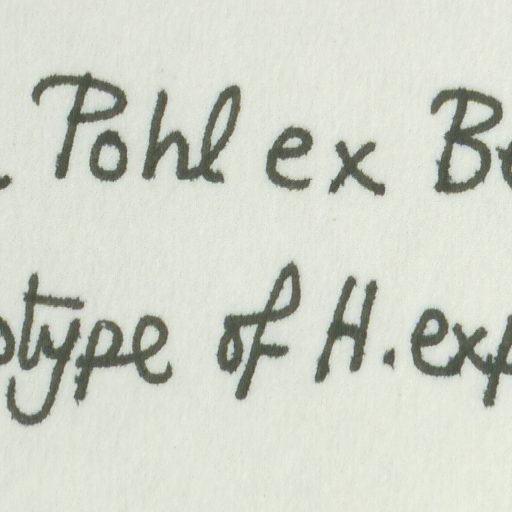 Pohl ex
type of H. exp